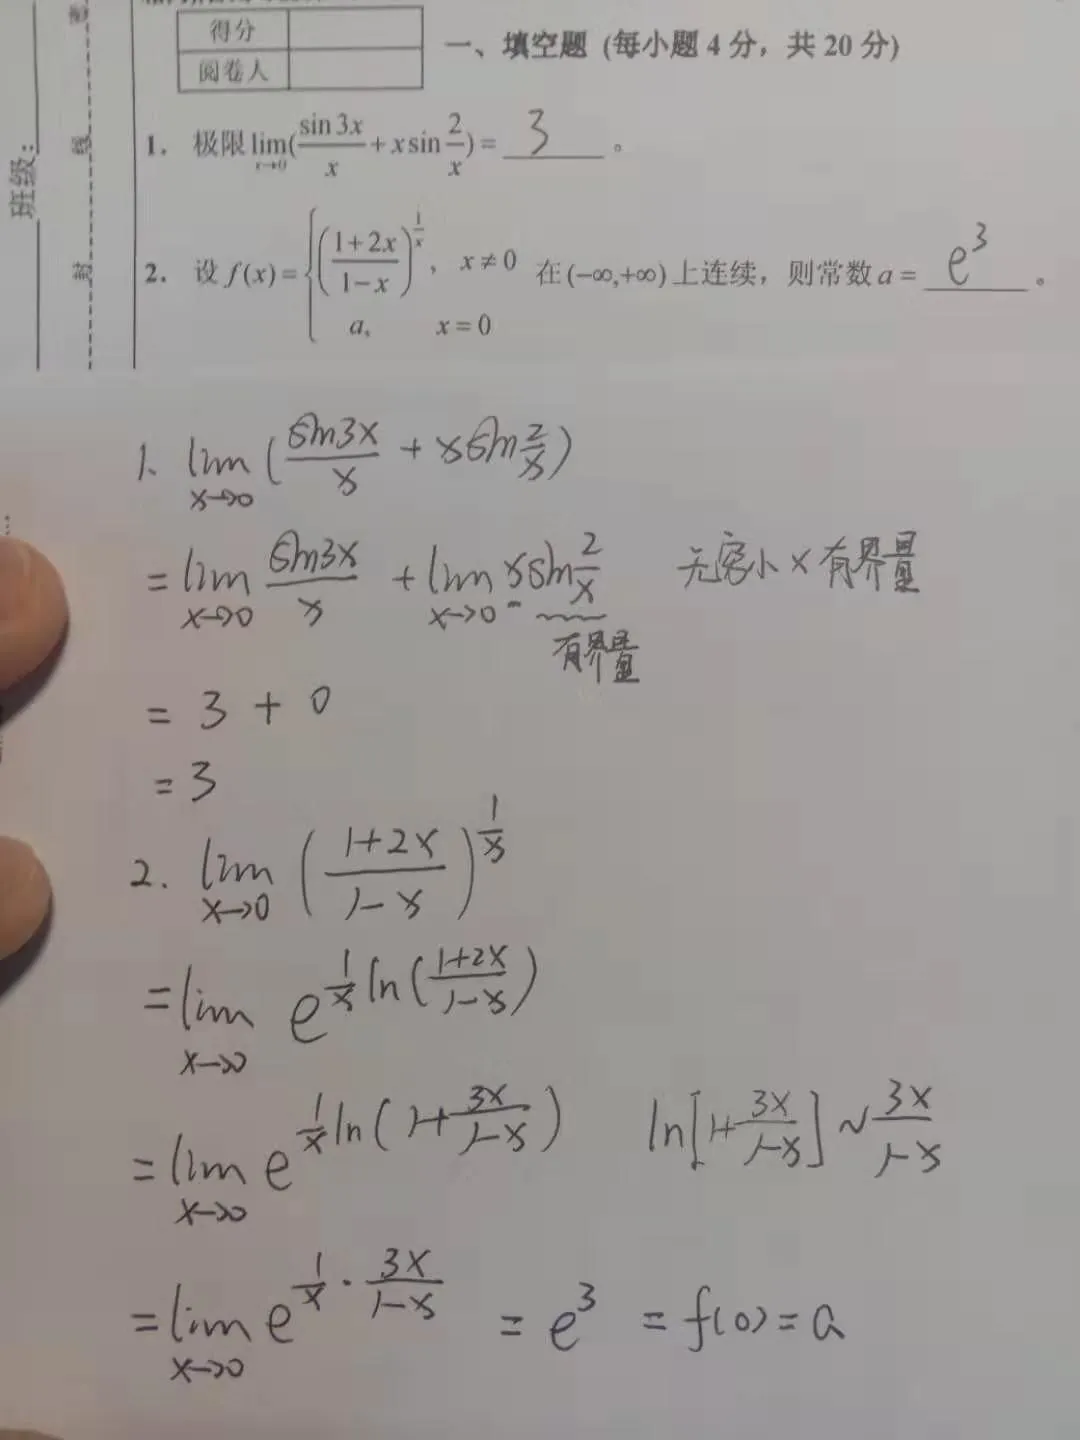 得分
阅卷人
一、填空题 (每小题 4 分，共 20 分)
班级:
线
封
1. 极限 lim_{x→0}(sin 3x/x + x sin 2/x) = 3 。
2. 设 f(x) = { ((1+2x)/(1−x))^{1/x}, x ≠ 0 在 (−∞,+∞) 上连续，则常数 a = e^3 。
a, x = 0
1. lim_{x→0} (sin3x/x + x sin 2/x)
= lim_{x→0} sin3x/x + lim_{x→0} x sin 2/x 无穷小 × 有界量
有界量
= 3 + 0
= 3
2. lim_{x→0} ((1+2x)/(1−x))^{1/x}
= lim_{x→0} e^{1/x ln((1+2x)/(1−x))}
= lim_{x→0} e^{1/x ln(1+3x/(1−x))} ln[1+3x/(1−x)] ~ 3x/(1−x)
= lim_{x→0} e^{1/x · 3x/(1−x)} = e^3 = f(0) = a